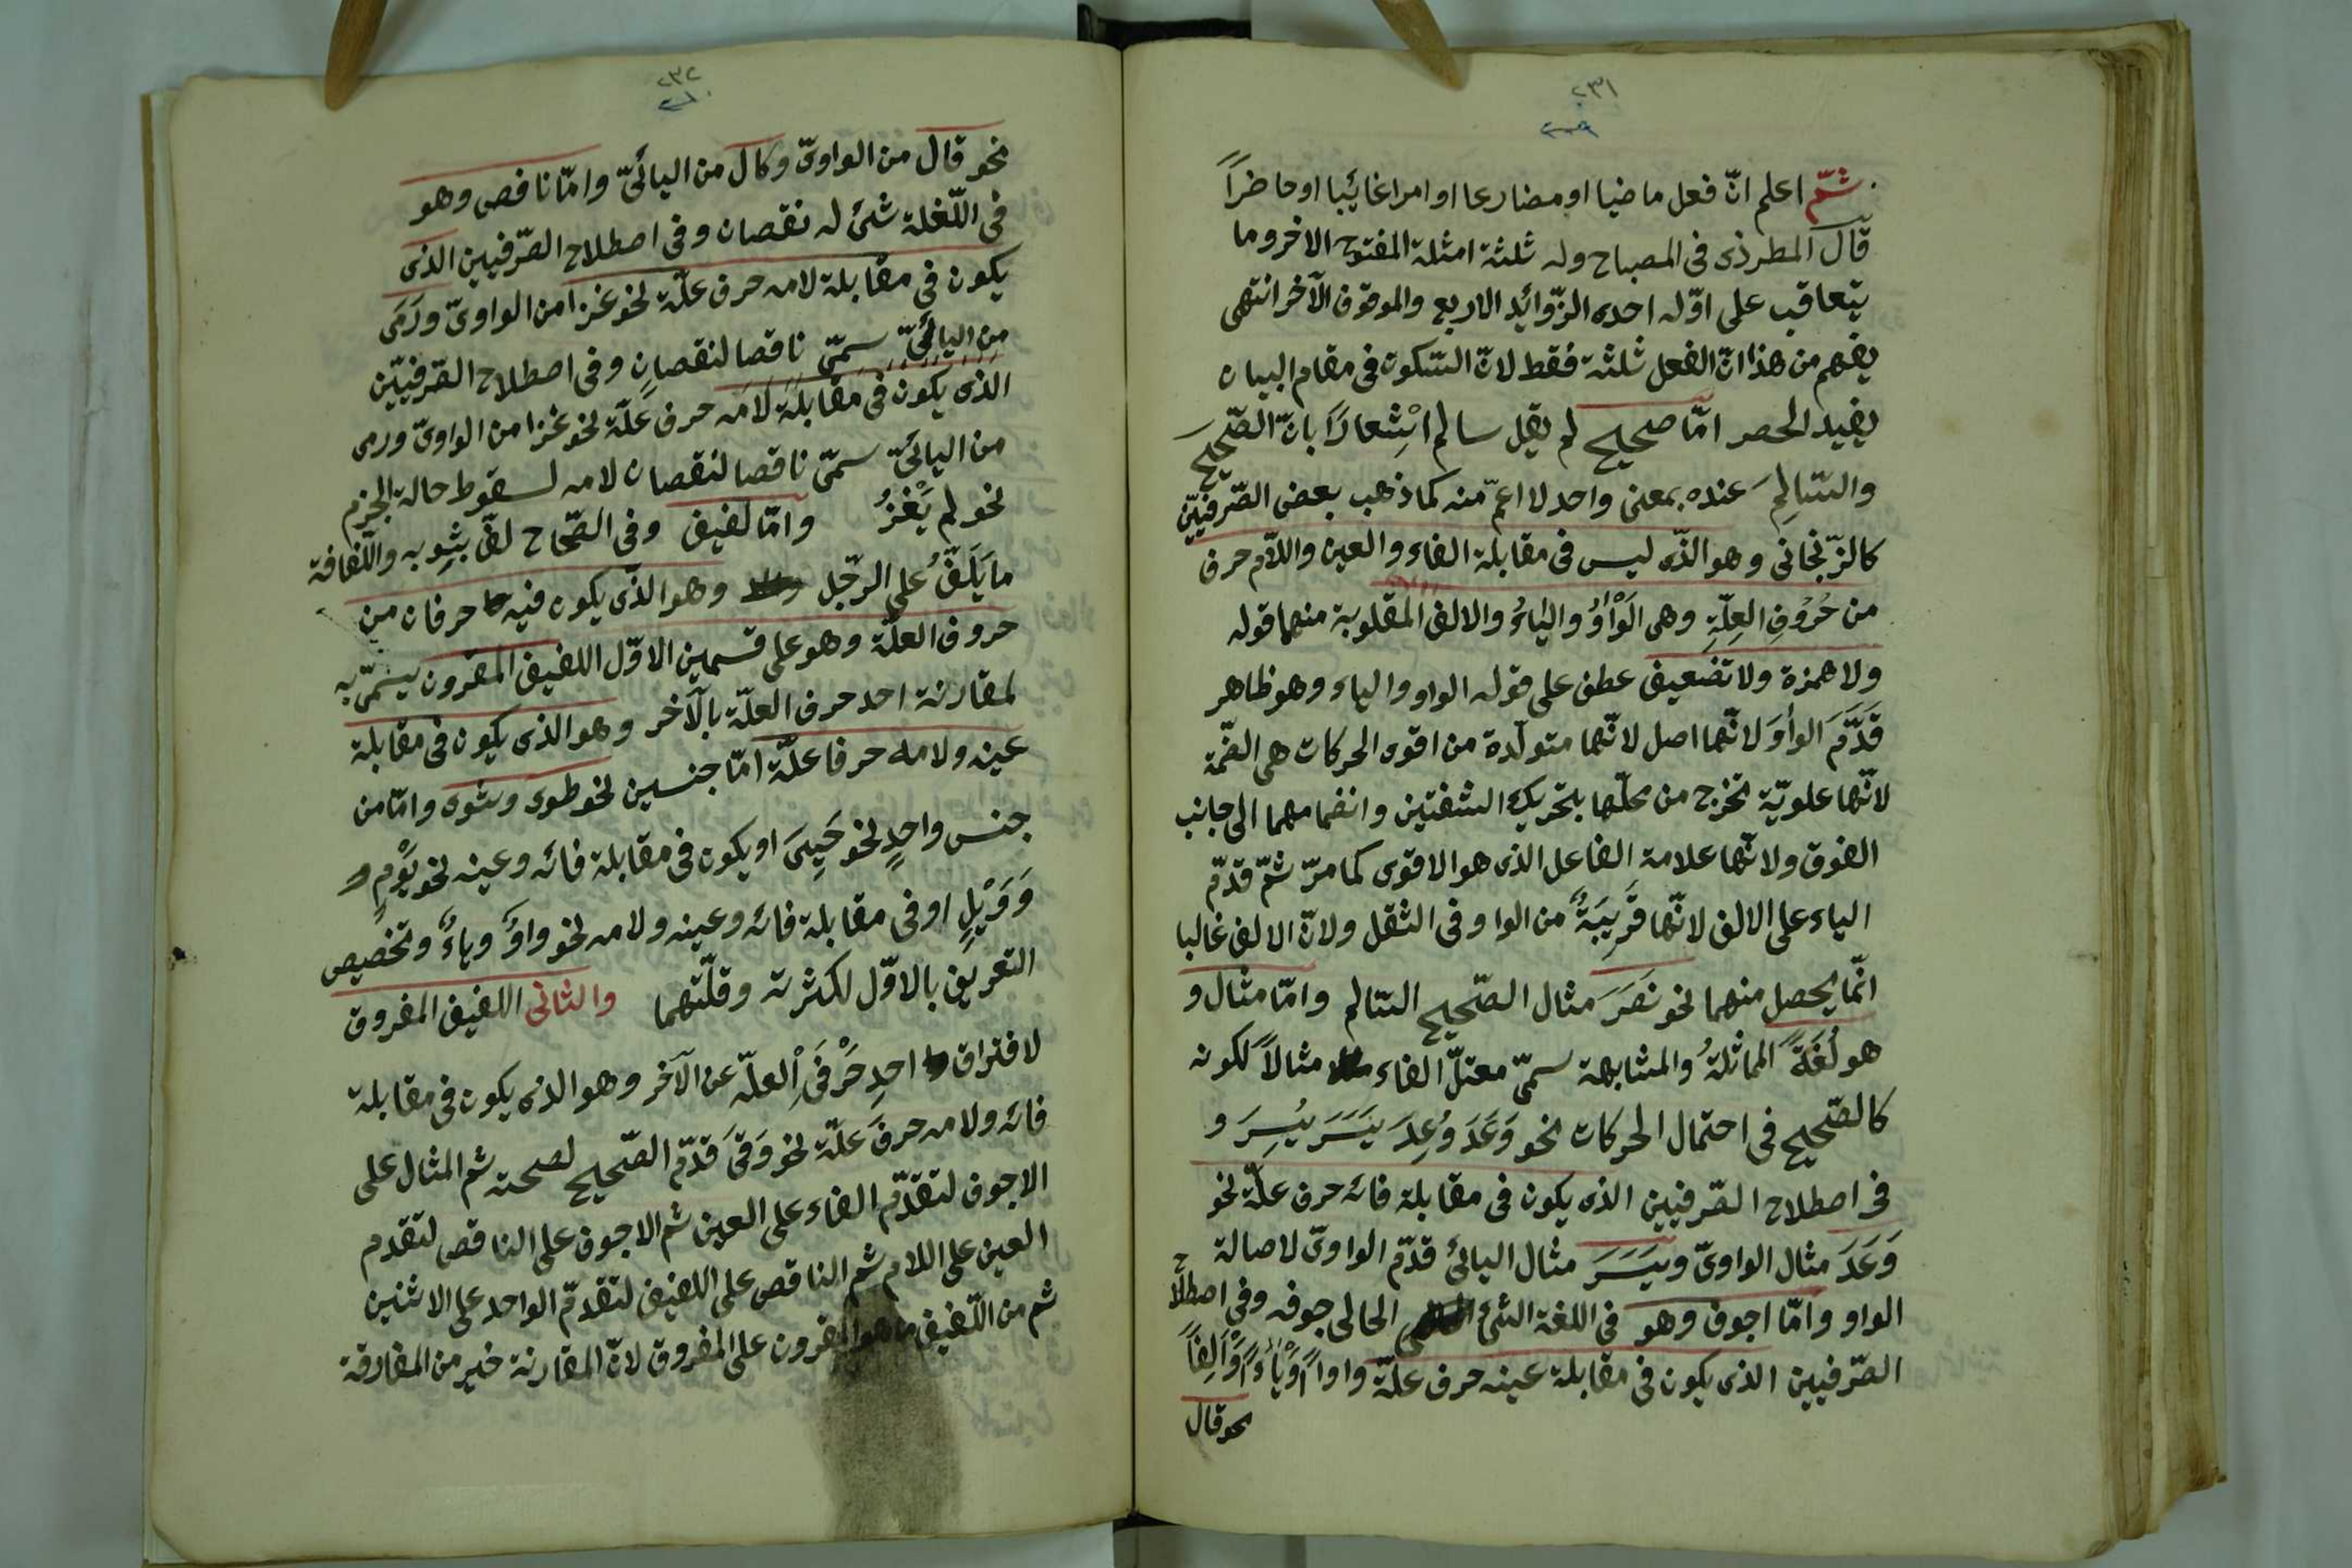 ٢٣١
ثمّ اعلم انّ فعل ماضيا او مضارعا او امرا غائيبا او حاضراً
قال المطرذى فى المصباح وله ثلثة امثلة المفتوح الاخر وما
يتعاقب على اوّله احدى الزّوائد الاربع والموقوف الآخر انتهى
يفهم من هذا انّ الفعل ثلثة فقط لانّ السّكوت فى مقام البيان
يفيد الحصر امّا صحيح لم يقل سالم اشِعارًا بانّ الصّحيح
والسّالِمَ عنده بمعنى واحد لا اعمّ منه كما ذهب بعض الصّرفيّين
كالزّنجانى وهو الذّى ليس فى مقابلة الفاء والعين واللاّم حرف
من حُرُوفِ العِلّةِ وهى الَوْاوُ والياءُ والالف المقلوبة منهما قوله
ولا همزة ولا تضعيف عطف على قوله الواو والياء وهو ظاهر
قَدَّمَ الواوَ لانّها اصل لانّها متولّدة من اقوى الحركات هى الضّمّة
لانّها علويّة تخرج من محلّها بتحريك الشفتين وانضمامهما الى جانب
الفوق ولانّها علامة الفاعل الذى هو الاقوى كما مرّ ثمّ قدّم
الياء على الالف لانّها قَرِيبَةٌ من الواو فى الثقل ولانّ الالف غالبا
انّما يحصل منهما نحو نَصَرَ مثال الصّحيح السّالم وامّا مثال و
هو لُغَةً المماثلةُ والمشابهة سمّى معتلّ الفاء مثالاً لكونه
كالصّحيح فى احتمال الحركات نحو وَعَدَ وُعِدَ يَسَرَ يُسِرَ و
فى اصطلاح الصّرفيين الذى يكون فى مقابلة فائه حرف علّة نحو
وَعَدَ مثال الواوىّ ويَسَرَ مثال اليائى قدّم الواوىّ لاصالة
الواو وامّا اجوف وهو فى اللغة الشئ الخالى جوفه وفى اصطلا
الصّرفيين الذى يكون فى مقابلة عينه حرف علّة واواً وْياءً وْاَلِفاً
نحو قال
٢٣٢
نحو قال من الواوىّ وكال من اليائىّ وامّا ناقص وهو
فى اللّغلة شئ له نقصان وفى اصطلاح الصّرفيين الذى
يكون فى مقابلة لامه حرف علّة نحو غزا من الواوىّ ورَمَى
من اليائىّ سمّى ناقصا لنقصان وفى اصطلاح الصّرفيّين
الذى يكون فى مقابلة لامه حرف علّة نحو غزا من الواوىّ ورمى
من اليائىّ سمّى ناقصا لنقصان لامه لسقوط حالة الجزم
نحو لم يَغْزُ وامّا لفيف وفى الصّحاح لفّ بثوبه واللّفافة
ما يَلَفُّ على الرّجل وهو الذّى يكون فيه حرفان من
حروف العلّة وهو على قسمين الاوّل اللفيف المقرون يسمّى به
لمقارنة احد حرف العلّة بالآخر وهو الذى يكون فى مقابلة
عينه ولامه حرفا علّة امّا جنسين نحو طوى وشوى وامّا من
جنس واحدٍ نحو حَيِىَ او يكون فى مقابلة فائه وعينه نحو يَوْمٍ
وَوَيْلٍ او فى مقابلة فائه وعينه ولامه نحو واوٌ وياءٌ وتخصيص
التعريف بالاوّل لكثرته وقلّتهما والثانى اللفيف المفروق
لافتراق احدِ حَرْفَىِ العلّة عن الآخر وهو الذى يكون فى مقابلة
فائه ولامه حرفَ علّة نحو وَقَى قدّم الصّحيح لصحته ثم المثال على
الاجوف لتقدّم الفاء على العين ثم الاجوف على الناقص لتقدم
العين على اللام ثم الناقص على اللفيف لتقدمّ الواحد على الاثنين
ثم من اللّفيف ما هو المقرون على المفروق لانّ المقارنة خير من المفارقة